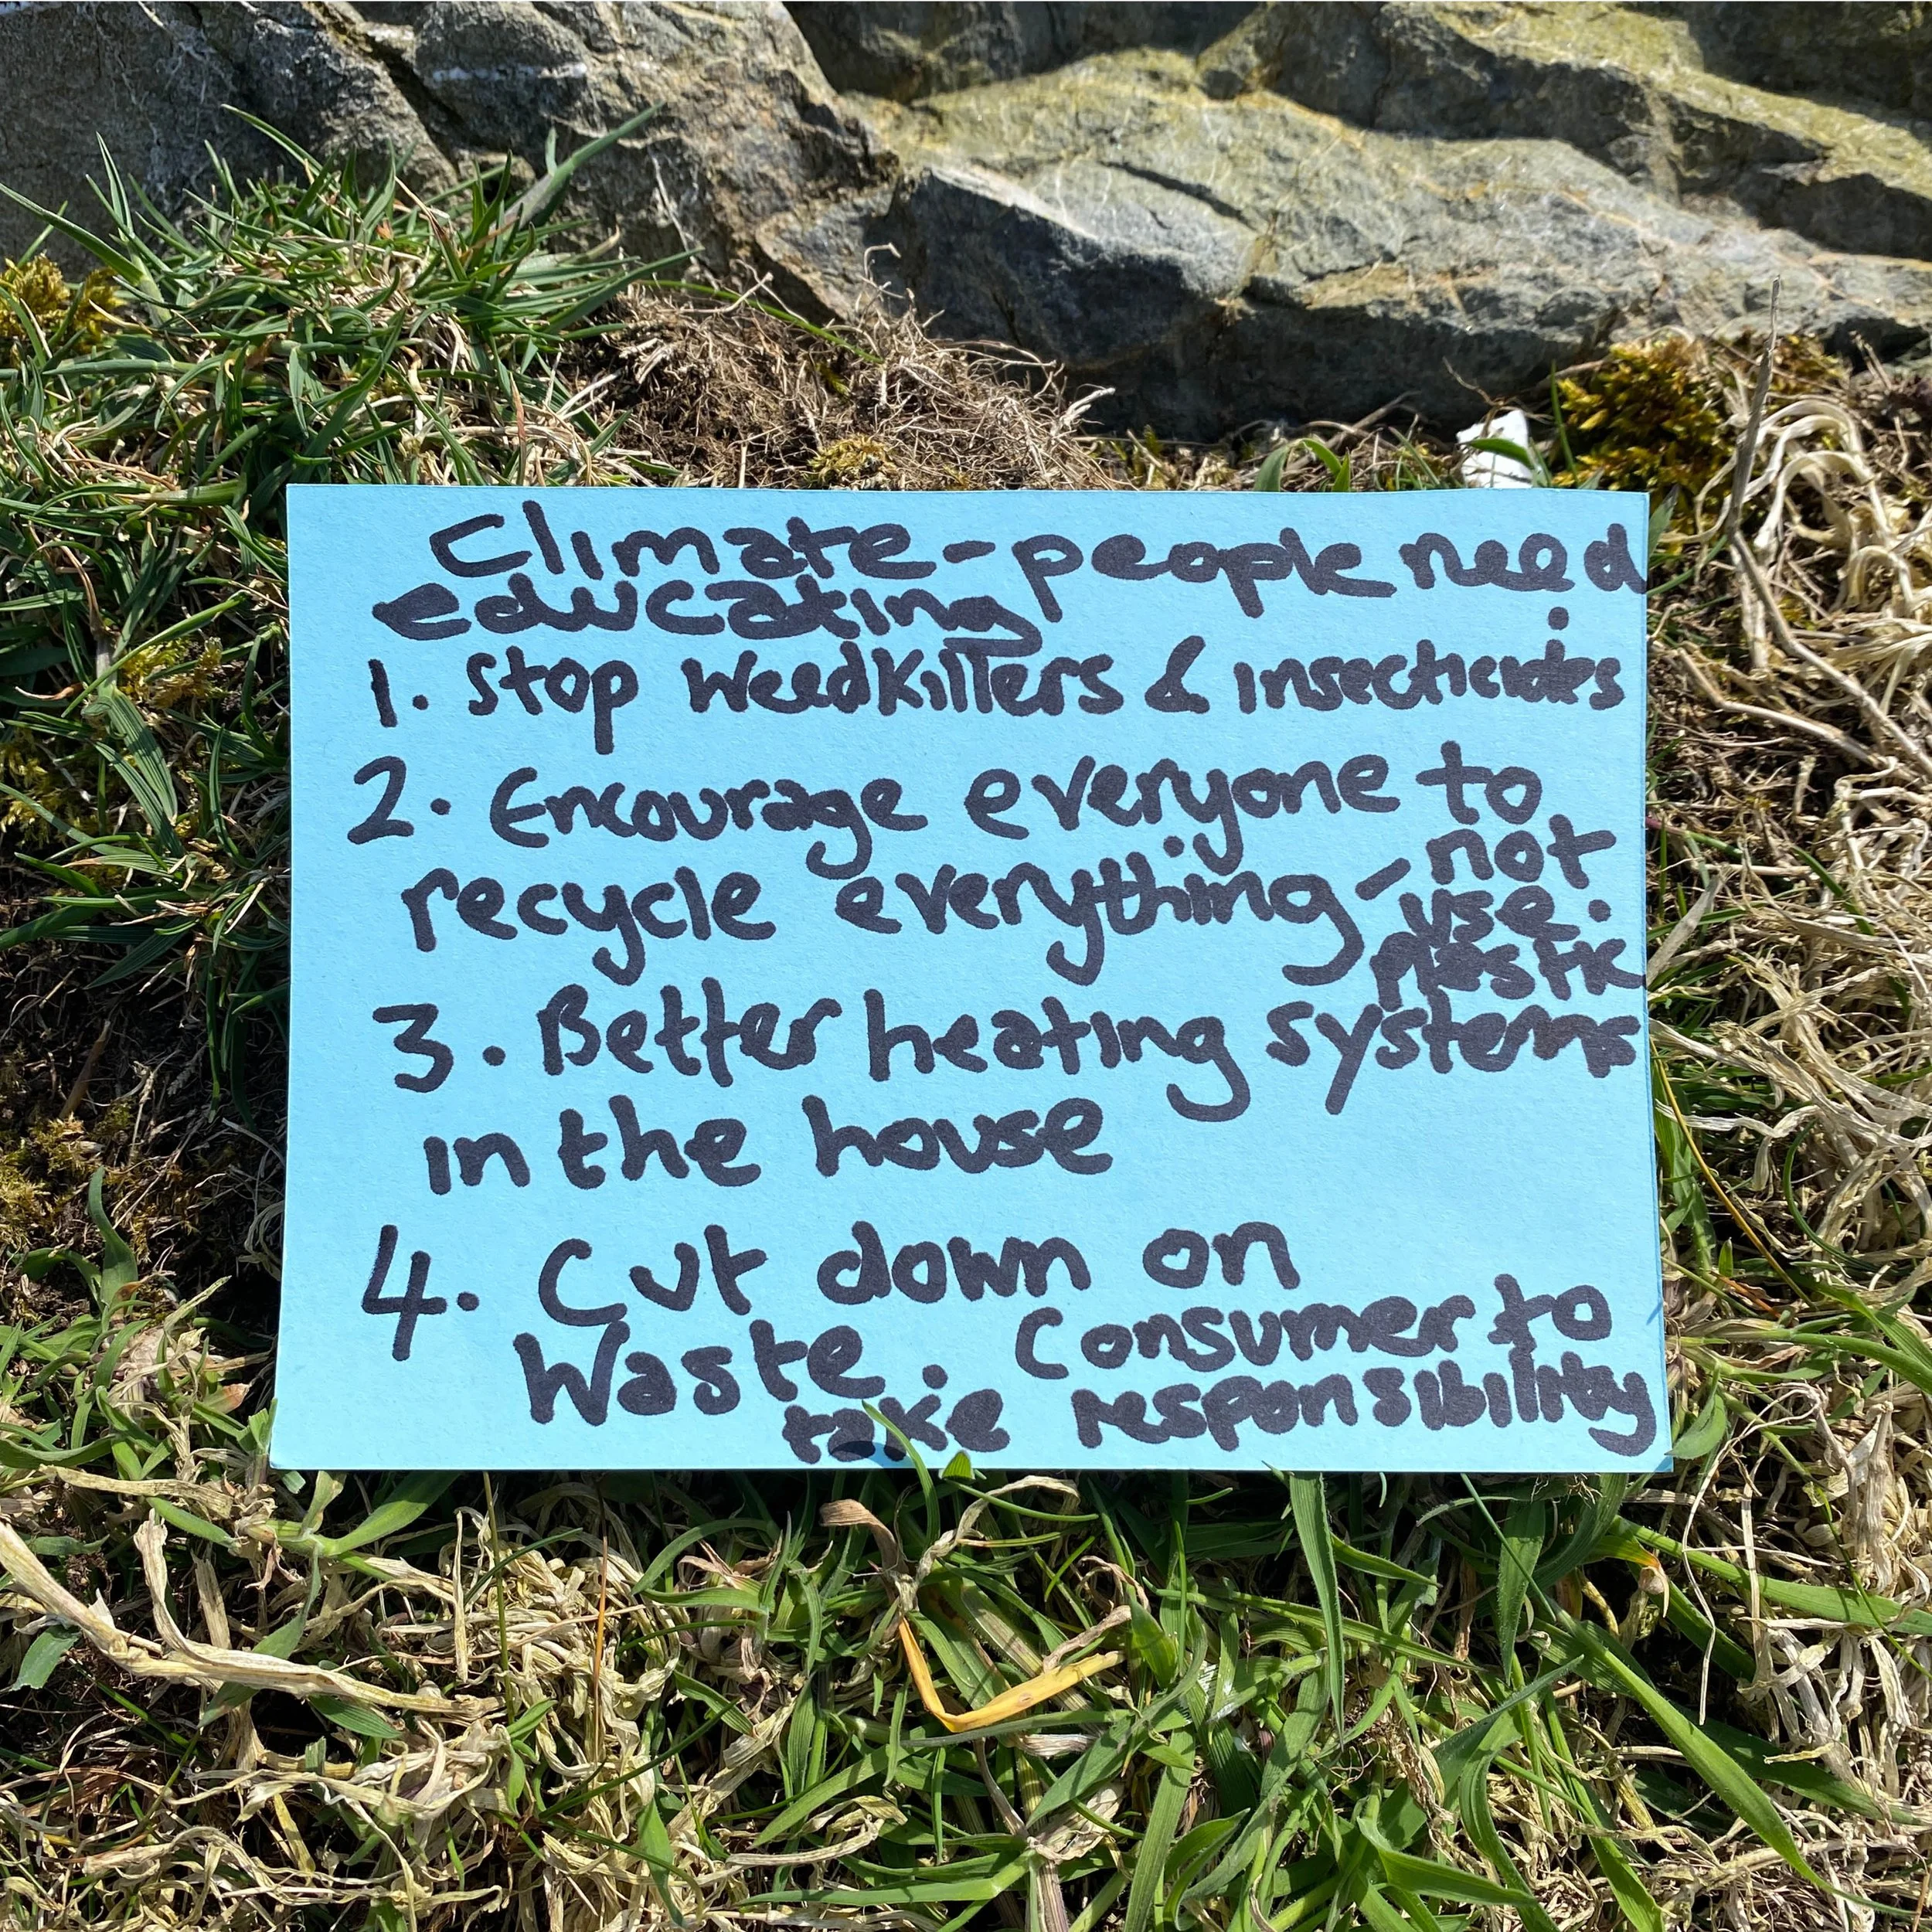 Climate - people need
educating
1. Stop Weedkillers & insecticides
2. Encourage everyone to
recycle everything - not
use.
plastic
3. Better heating systems
in the house
4. Cut down on
Waste. Consumer to
take responsibility